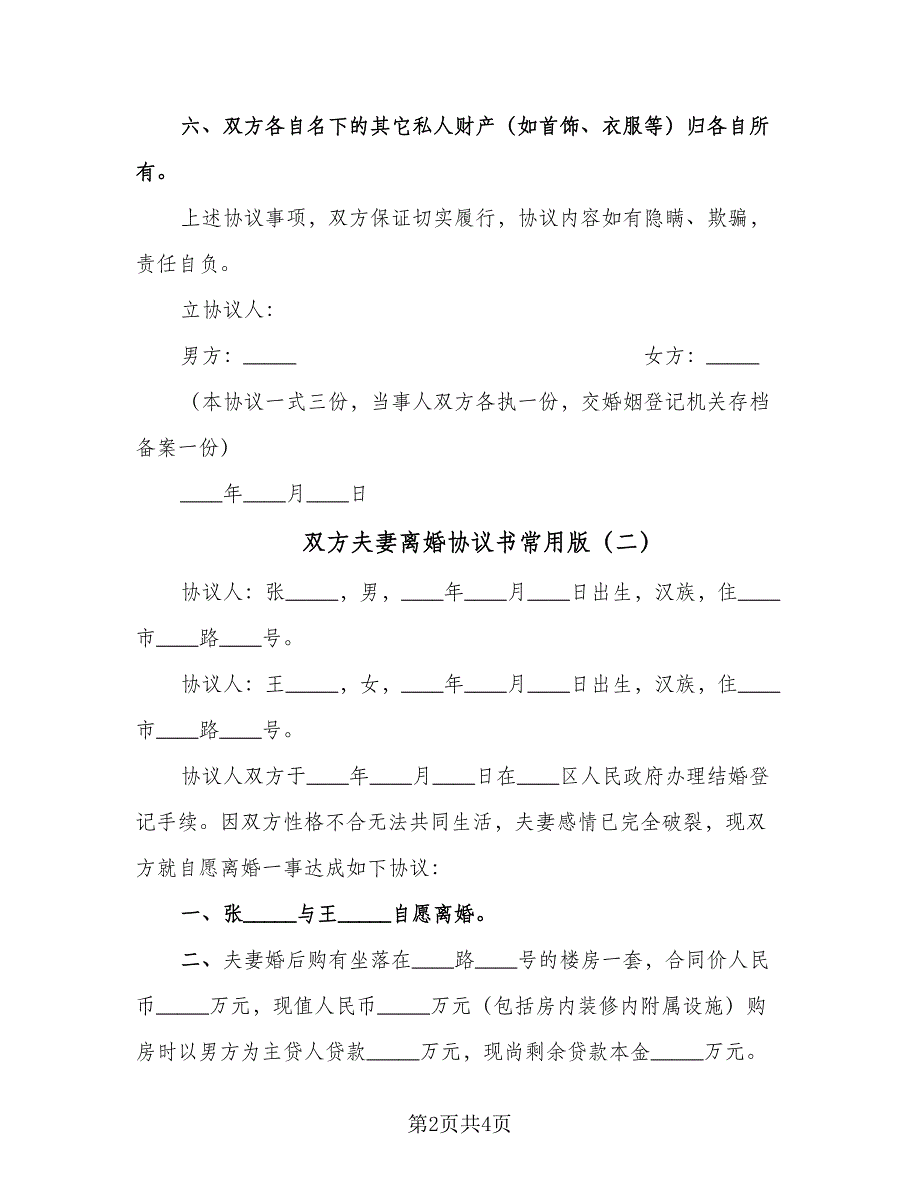 六、双方各自名下的其它私人财产（如首饰、衣服等）归各自所
有。
上述协议事项，双方保证切实履行，协议内容如有隐瞒、欺骗，
责任自负。
立协议人：
男方：_____ 女方：_____
（本协议一式三份，当事人双方各执一份，交婚姻登记机关存档
备案一份）
____年____月____日
双方夫妻离婚协议书常用版（二）
协议人：张_____，男，____年____月____日出生，汉族，住____
市____路____号。
协议人：王_____，女，____年____月____日出生，汉族，住____
市____路____号。
协议人双方于____年____月____日在____区人民政府办理结婚登
记手续。因双方性格不合无法共同生活，夫妻感情已完全破裂，现双
方就自愿离婚一事达成如下协议：
一、张_____与王_____自愿离婚。
二、夫妻婚后购有坐落在____路____号的楼房一套，合同价人民
币_____万元，现值人民币_____万元（包括房内装修内附属设施）购
房时以男方为主贷人贷款_____万元，现尚剩余贷款本金_____万元。
第2页共4页